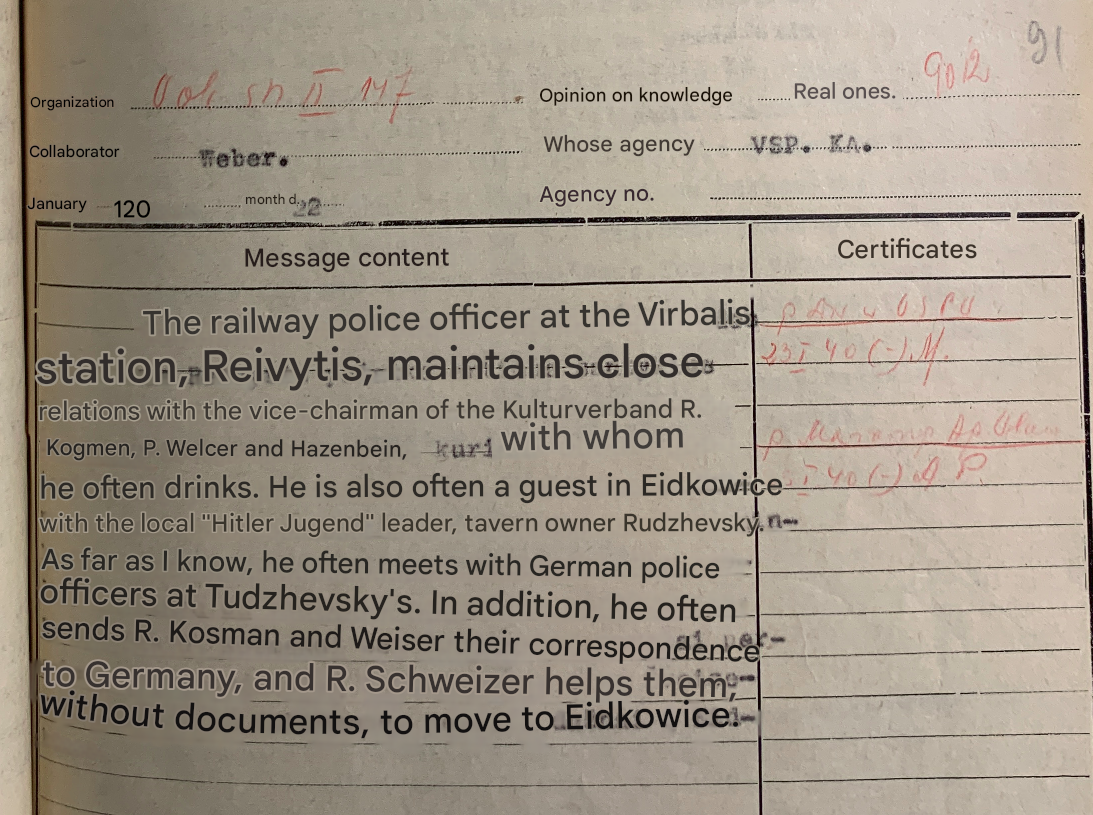 91
Organization II 147 Opinion on knowledge Real ones.
Collaborator Weber. Whose agency VSP. KA.
January 120 month d. 22 Agency no.
Message content Certificates
The railway police officer at the Virbalis
station, Reivytis, maintains close
relations with the vice-chairman of the Kulturverband R.
Kogmen, P. Welcer and Hazenbein, kuri with whom
he often drinks. He is also often a guest in Eidkowice
with the local "Hitler Jugend" leader, tavern owner Rudzhevsky.
As far as I know, he often meets with German police
officers at Tudzhevsky's. In addition, he often
sends R. Kosman and Weiser their correspondence
to Germany, and R. Schweizer helps them,
without documents, to move to Eidkowice.
23 I 40 (-) M.
I 40 (-)